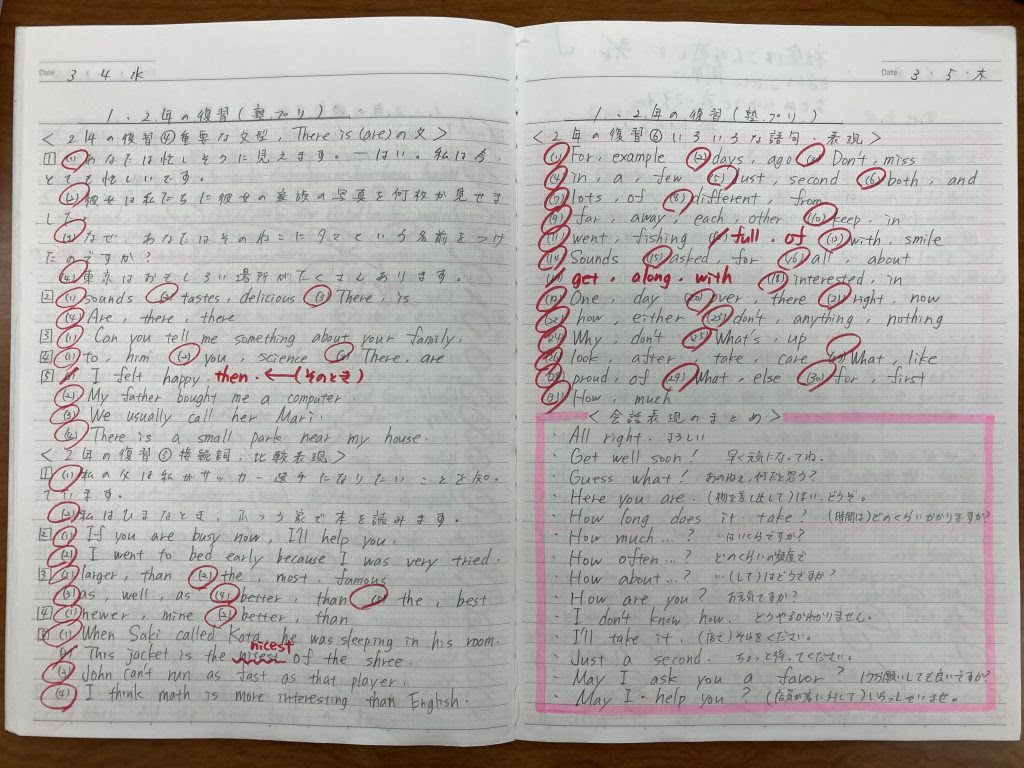 Date 3・4・水
1、2年の復習(塾プリ)
<2年の復習④重要な文型、There is (are)の文>
1 (1)あなたは忙しそうに見えます。―はい。私は今、
とても忙しいです。
(2)彼女は私たちに彼女の家族の写真を何枚か見せま
した。
(3)なぜ、あなたはそのねこにタマという名前をつけ
たのですか?
(4)東京はおもしろい場所がたくさんあります。
2 (1) sounds (2) tastes, delicious (3) There, is
(4) Are, there, there
3 (1) Can you tell me something about your family.
4 (1) to, him (2) you, science (3) There, are
5 (1) I felt happy then. ←(そのとき)
(2) My father bought me a computer.
(3) We usually call her Mari.
(4) There is a small park near my house.
<2年の復習⑤接続詞、比較表現>
1 (1)私の父は私がサッカー選手になりたいことを知っ
ています。
(2)私はひまなとき、ふつう家で本を読みます。
2 (1) If you are busy now, I'll help you.
(2) I went to bed early because I was very tried.
3 (1) larger, than (2) the, most, famous
(3) as, well, as (4) better, than (5) the, best
4 (1) newer, mine (2) better, than
5 (1) When Saki called Kota, he was sleeping in his room.
nicest
(2) This jacket is the nicest of the shree.
(3) John can't run as fast as that player.
(4) I think math is more interesting than English.
Date 3・5・木
1、2年の復習(塾プリ)
<2年の復習⑥いろいろな語句・表現>
(1) For, example (2) days, ago (3) Don't, miss
(4) in, a, few (5) Just, second (6) both, and
(7) lots, of (8) different, from
(9) far, away, each, other (10) keep, in
(11) went, fishing (12) full, of (13) with, smile
(14) Sounds (15) asked, for (16) all, about
(17) get, along, with (18) interested, in
(19) One, day (20) over, there (21) right, now
(22) how, either (23) don't, anything, nothing
(24) Why, don't (25) What's, up
(26) look, after, take, care (27) What, like
(28) proud, of (29) What, else (30) for, first
(31) How, much
<会話表現のまとめ>
・All right. よろしい
・Get well soon! 早く元気になってね。
・Guess what! あのねぇ、何だと思う?
・Here you are. (物を差し出して)はい、どうぞ。
・How long does it take? (時間は)どのくらいかかりますか?
・How much …? …はいくらですか?
・How often …? どのくらいの頻度で
・How about …? …(して)はどうですか?
・How are you? お元気ですか?
・I don't know how. どうやるかわかりません。
・I'll take it. (店で)それをください。
・Just a second. ちょっと待ってください。
・May I ask you a favor? 1つお願いしても良いですか?
・May I help you? (店員が客に対して)いらっしゃいませ。